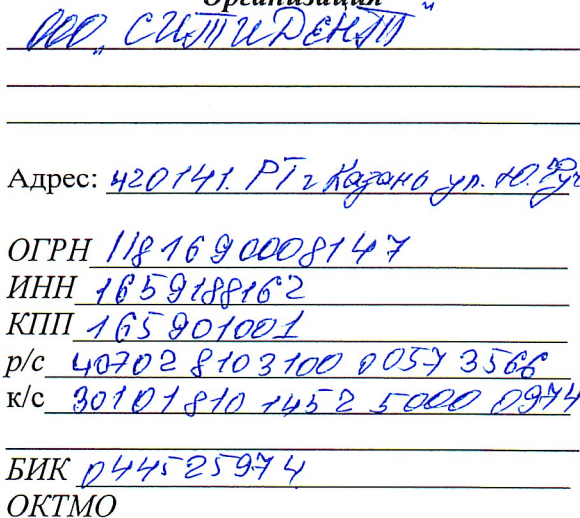 Организация
ООО "СИТИДЕНТ"
Адрес: 420141. РТ г Казань ул. Ю. Фуч
ОГРН 1181690008147
ИНН 1659188162
КПП 165901001
р/с 40702 810 3100 0057 3566
к/с 30101 810 1452 5000 0974
БИК 044525974
ОКТМО